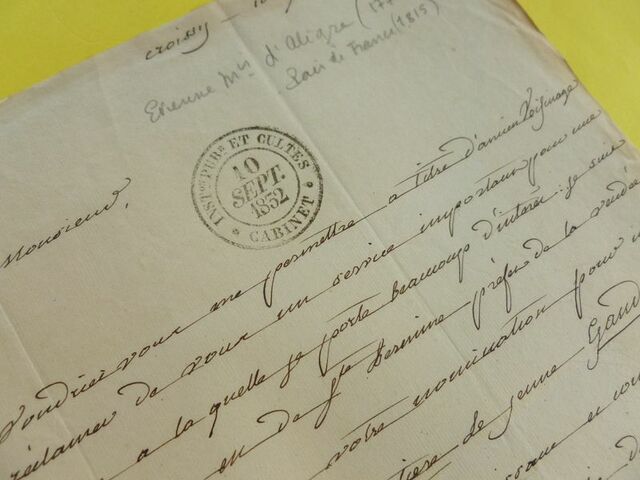 croissy
Etienne Mis d'Aligre (177
Pair de France (1815)
INSTon PUBe ET CULTES
10
SEPT.
1852
* CABINET *
Monsieur,
Voudriez vous me permettre a titre d'ancien Voisinage
réclamer de vous un service important pour une
a la quelle je porte beaucoup d'intérêt. je suis
en de préfet de la Vendée
votre nomination pour
de jeune Gand
et